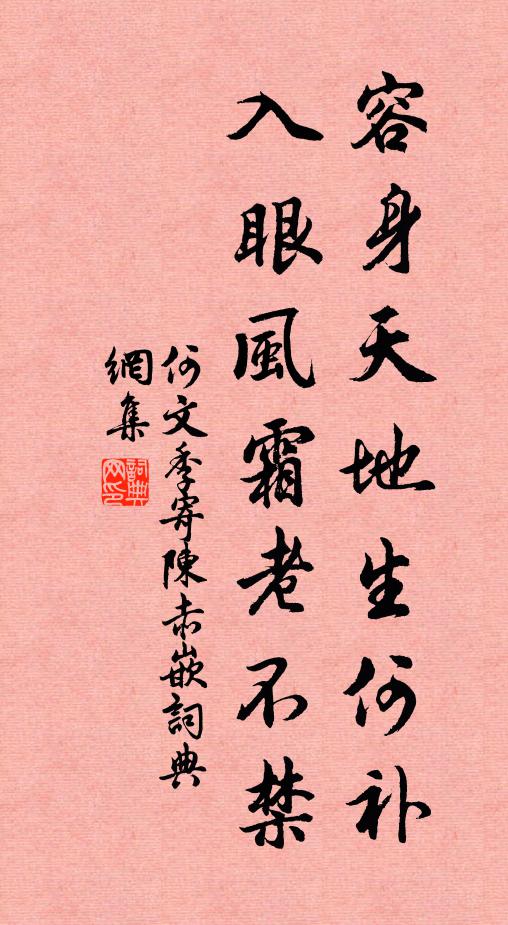 容身天地生何补
入眼風霜老不禁
何文季寄陳赤嵌詞典
網集
詞典
网印